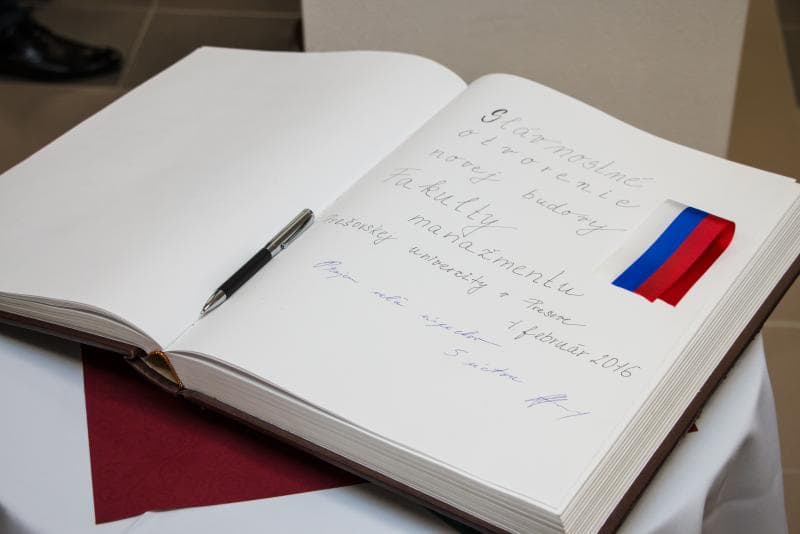 Slávnostné
otvorenie
novej budovy
Fakulty
manažmentu
Prešovskej univerzity v Prešove
1 február 2016
Prajem veľa úspechov
S úctou